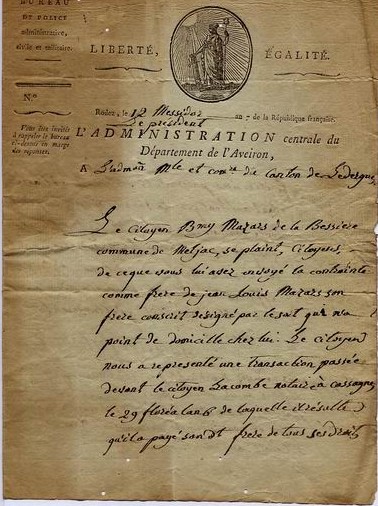 BUREAU
DE POLICE
administrative,
civile et militaire.
LIBERTÉ,
ÉGALITÉ.
N.º
Vous êtes invité
à rappeler le bureau
ci-dessus en marge
des réponses.
Rodez, le 12 Messidor an 7 de la République française.
Le président
L'ADMINISTRATION centrale du
Département de l'Aveiron,
A L'admon mle et comre du canton de Ledergue,
Le citoyen Bmy Mazars de la Bessiere
commune de Meljac, se plaint, Citoyens,
de ce que vous lui avez envoyé la contrainte
comme frere de jean Louis Mazars son
frere conscrit designé par le sort qui n'a
point de domicille chez lui. Le citoyen
nous a representé une transaction passée
devant le citoyen Lacombe notaire à cassagnes
le 29 floréal an 6 de laquelle il résulte
qu'il a payé son dt frere de tous ses droits